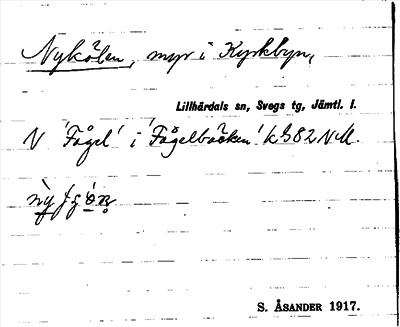 Nykölen, myr i Kyrkbyn,
Lillhärdals sn, Svegs tg, Jämtl. l.
N 'Fågel' i 'Fågelbäcken' k. 82 NM.
S. ÅSANDER 1917.